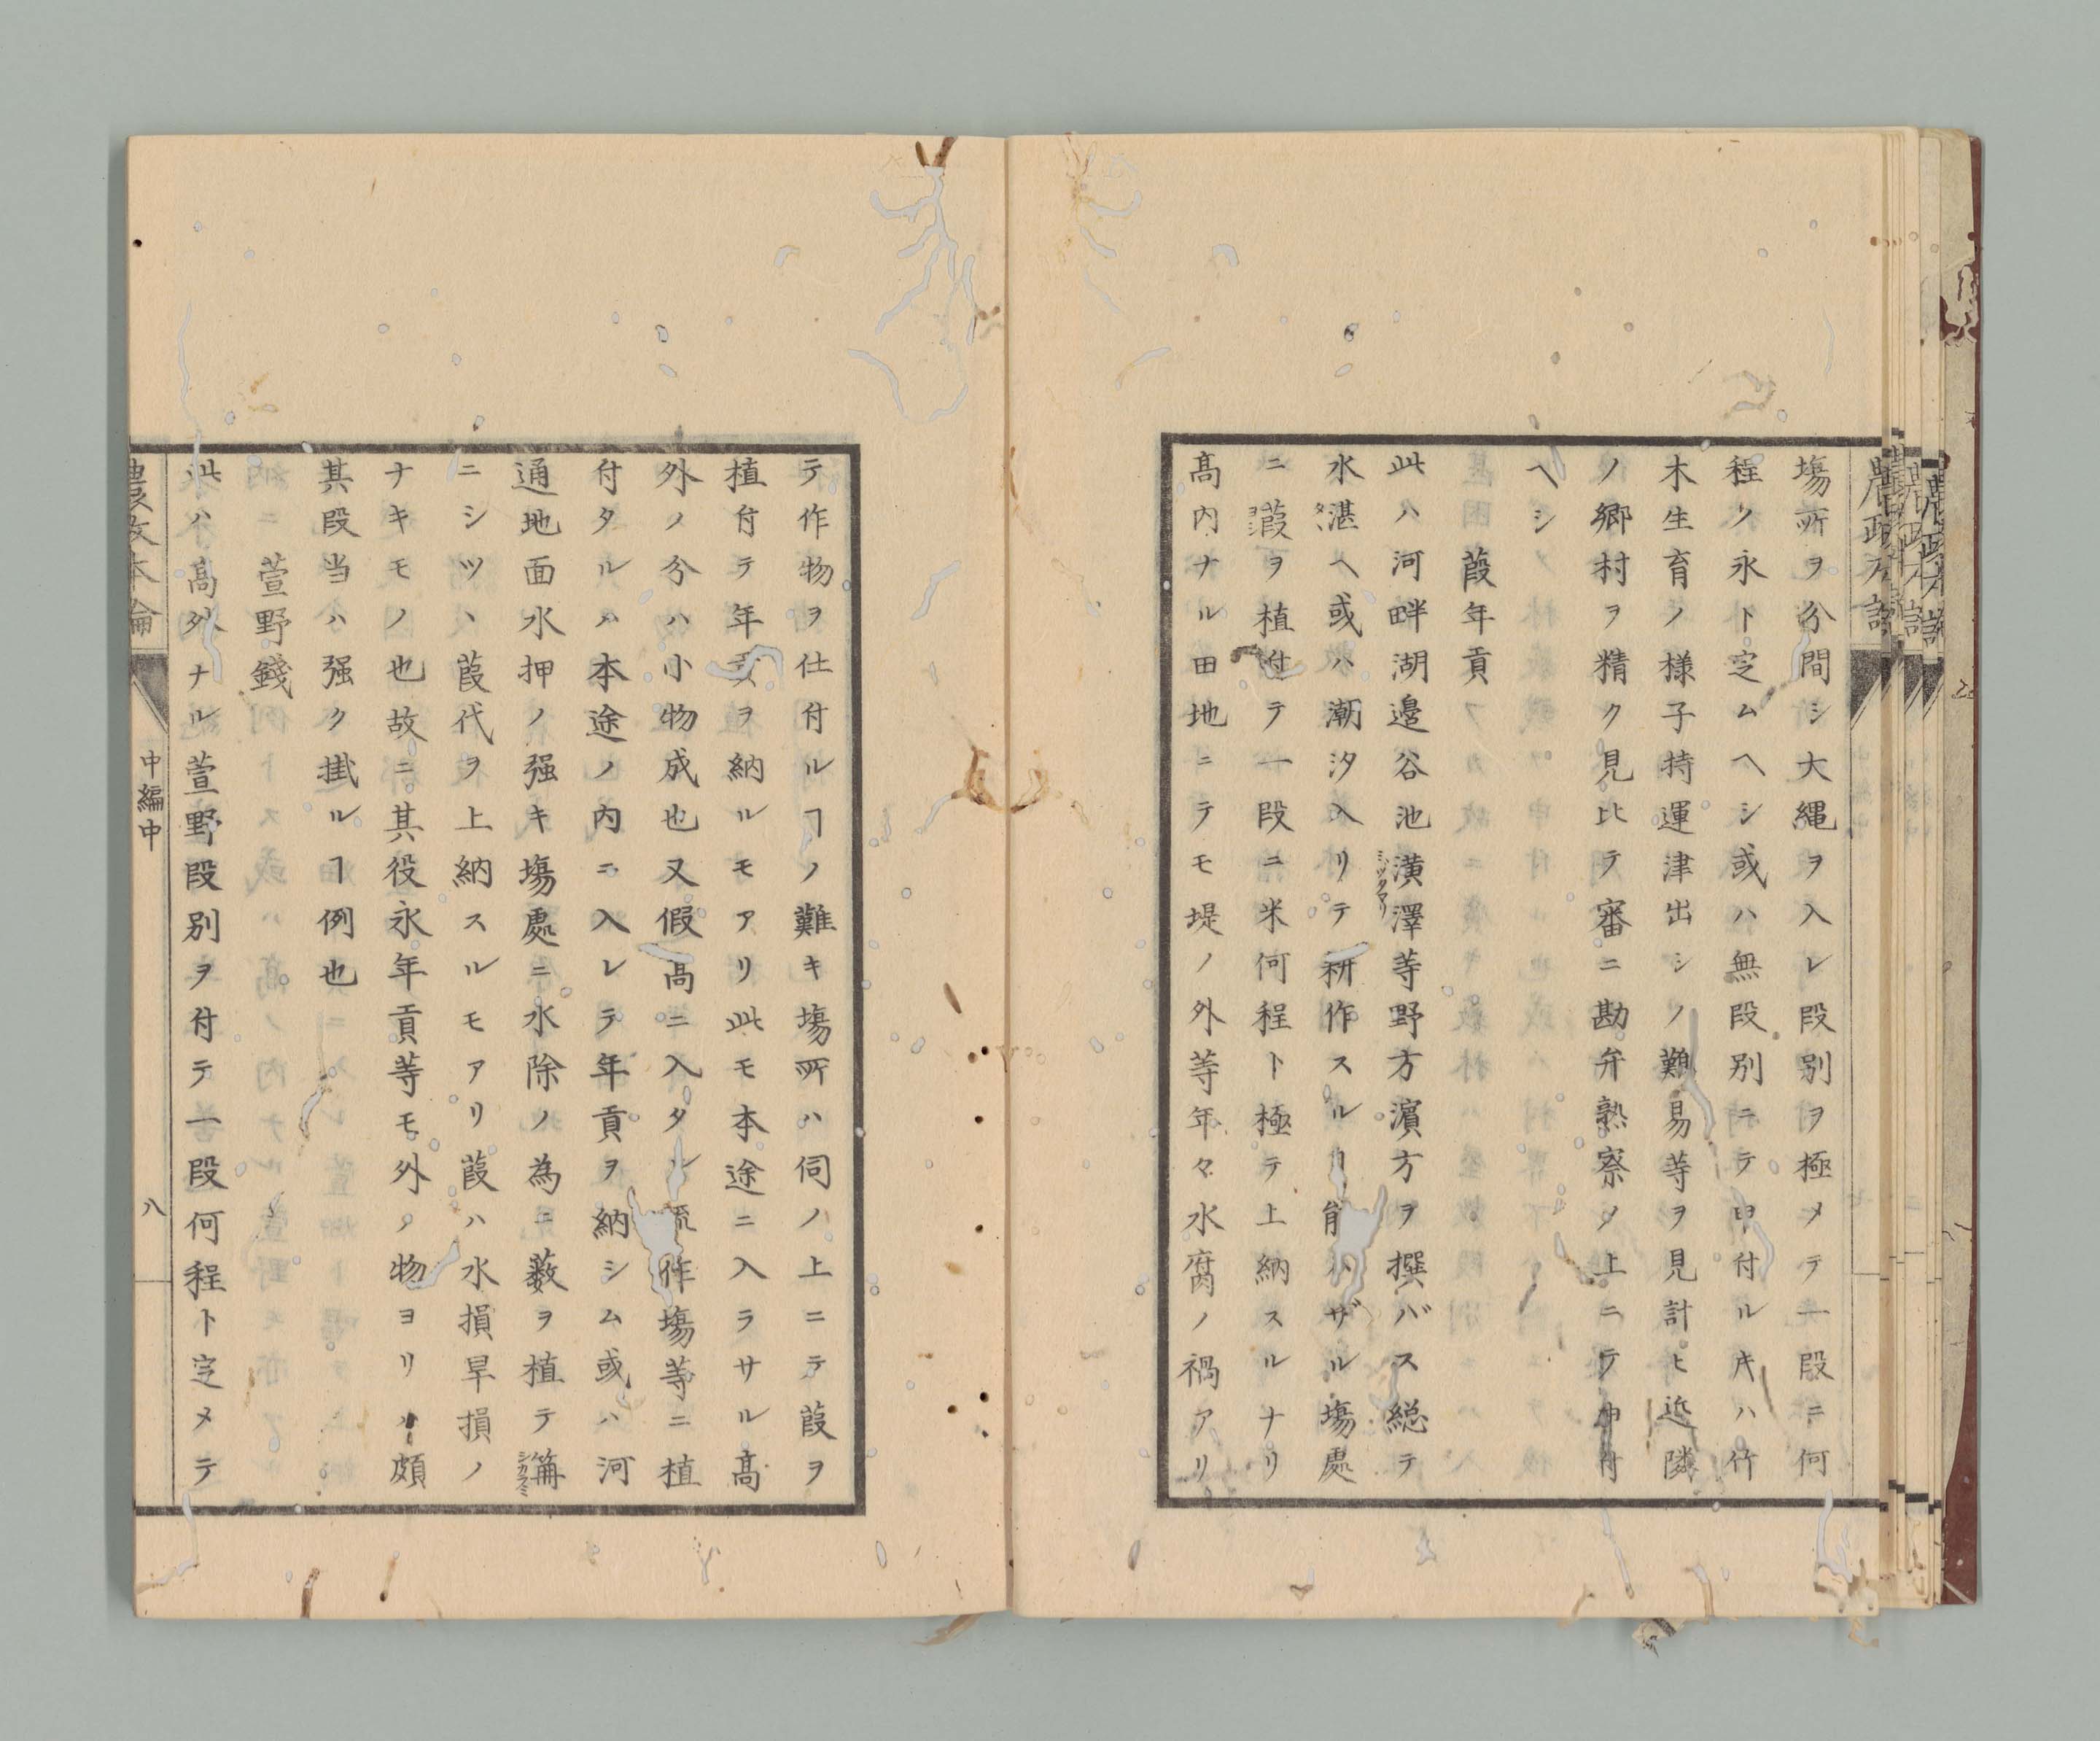 塲所ヲ分間シ大縄ヲ入レ段別ヲ極メテ一段ニ何
程ク永ト定ムヘシ或ハ無段別ニテ申付ルキハ竹
木生育ノ様子持運津出シノ難易等ヲ見計ヒ近隣
ノ郷村ヲ精ク見比テ審ニ勘弁熟察ノ上ニテ申付
ヘシ
葭年貢
此ハ河畔湖邊谷池潢澤等野方濵方ヲ撰バス総テ
ミヅタマリ
水湛ヘ或ハ潮汐入リテ耕作スル能ハザル塲處
ニ葭ヲ植付テ一段ニ米何程ト極テ上納スルナリ
髙内ナル田地ニテモ堤ノ外等年々水腐ノ禍アリ
テ作物ヲ仕付ルヿノ難キ塲所ハ伺ノ上ニテ葭ヲ
植付テ年貢ヲ納ルモアリ此モ本途ニ入ラサル髙
外ノ分ハ小物成也又假髙ニ入タル流作塲等ニ植
付タルハ本途ノ内ニ入レテ年貢ヲ納シム或ハ河
通地面水押ノ强キ塲處ニ水除ノ為ニ藪ヲ植テ
シガラミ
ニシツヽ葭代ヲ上納スルモアリ葭ハ水損旱損ノ
ナキモノ也故ニ其役永年貢等モ外ノ物ヨリハ頗
其段当ハ强ク掛ルヿ例也
萱野錢
此ハ髙外ナル萱野段别ヲ付テ一段何程ト定メテ
農政本論
中編中
八